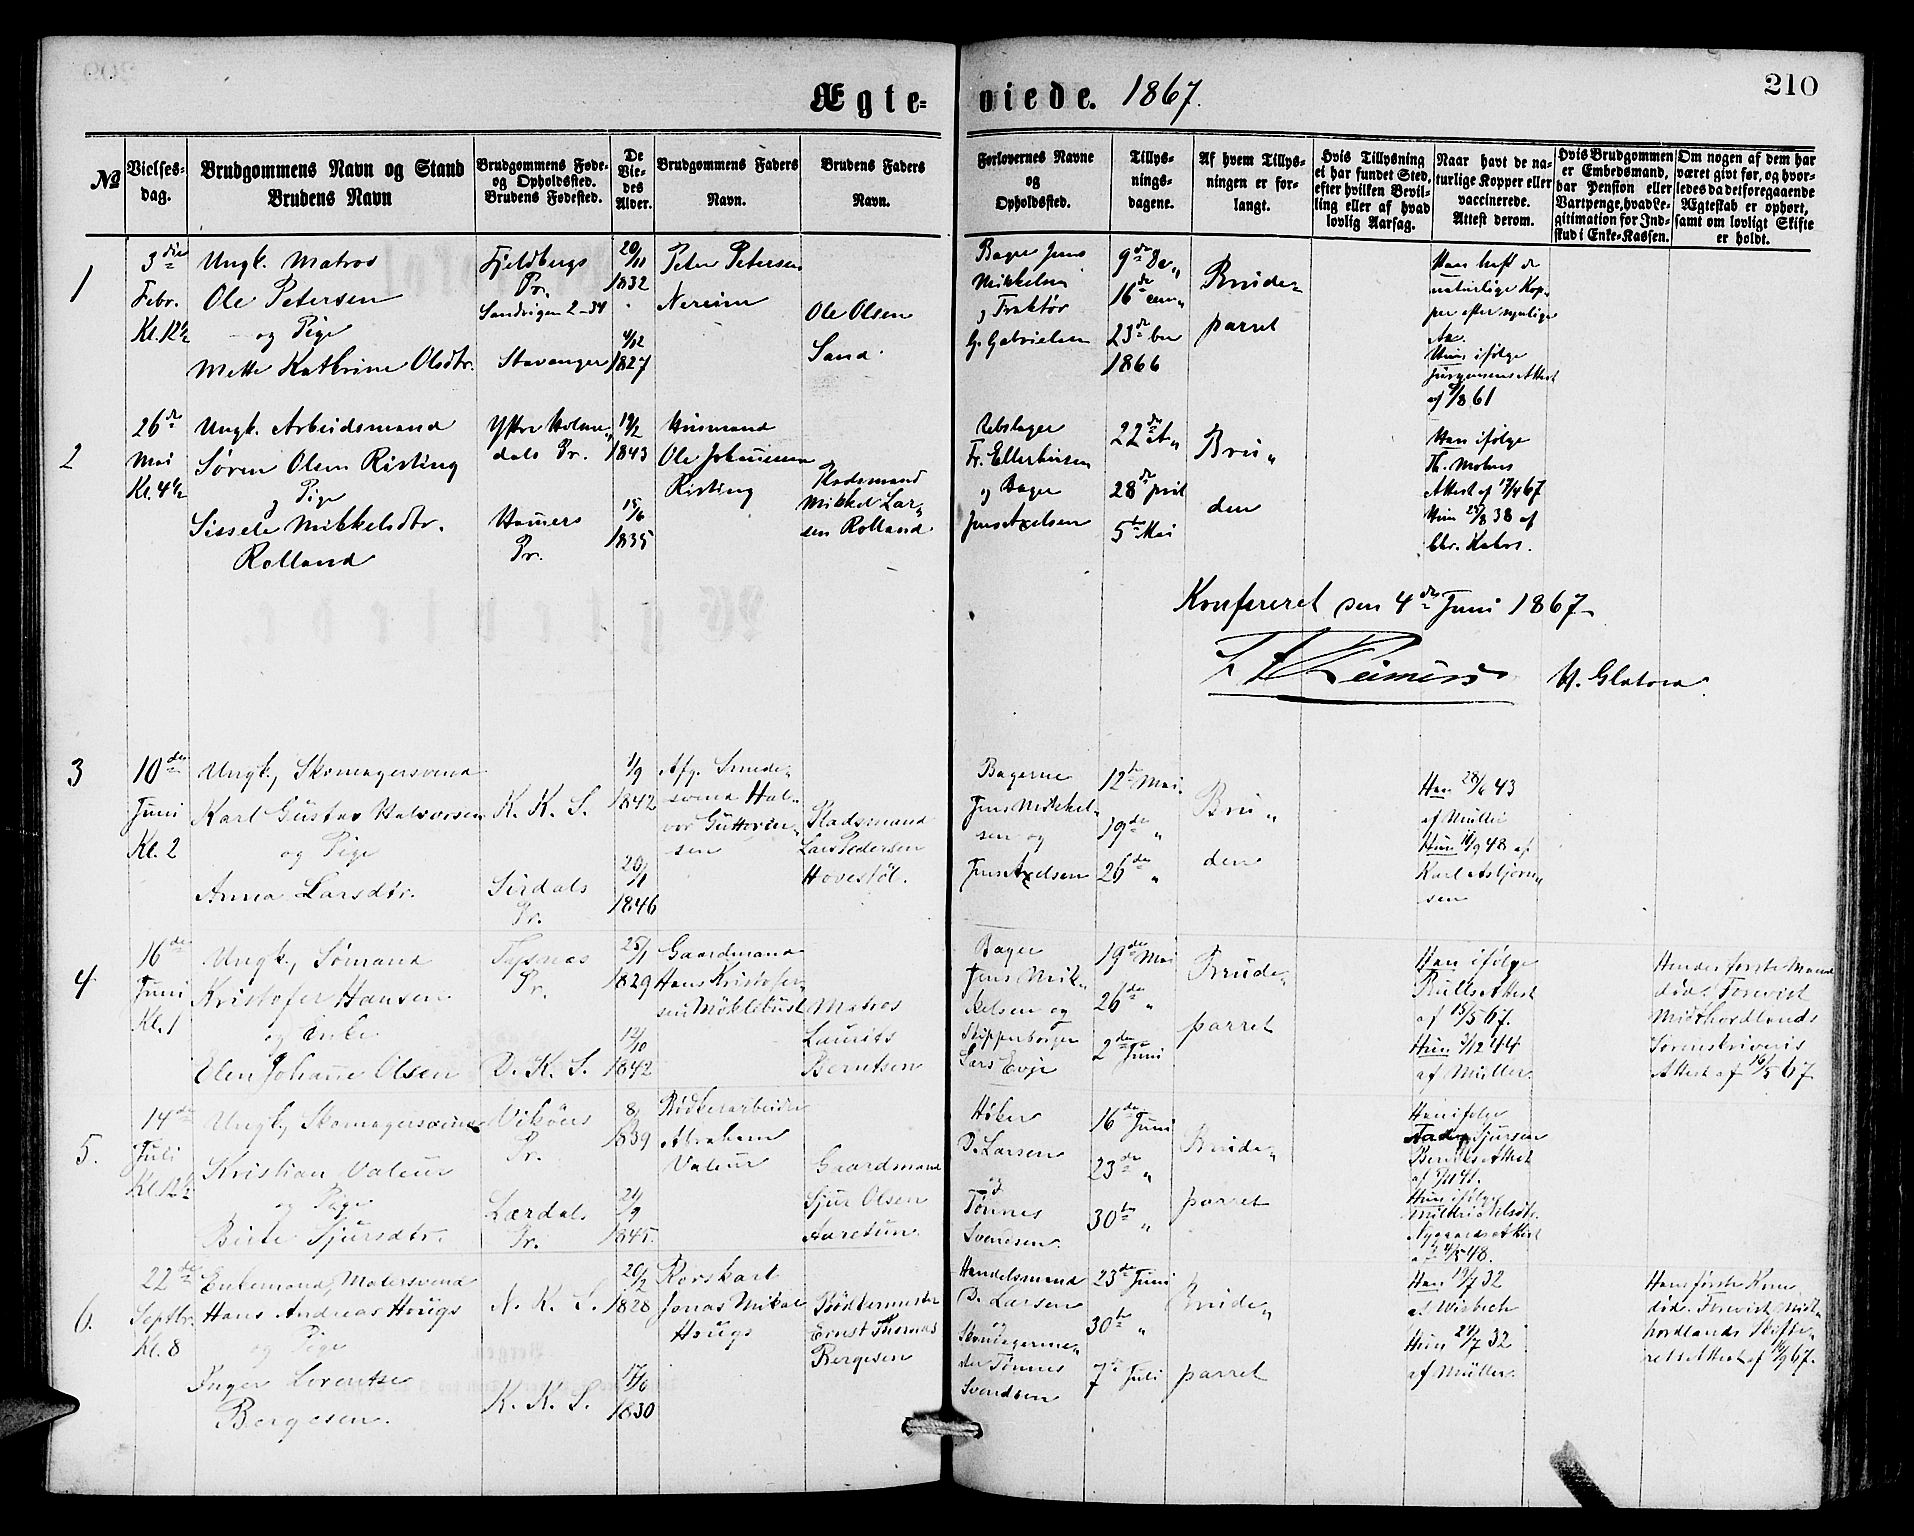 210
Ægte- viede. 1867.
№
Vielses-
dag.
Brudgommens Navn og Stand
Brudens Navn
Brudgommens Føde-
og Opholdssted.
Brudens Fødested.
De
Vie-
des
Alder.
Brudgommens Faders
Navn.
Brudens Faders
Navn.
Forlovernes Navne
og
Opholdssted.
Tillys-
nings-
dagene.
Af hvem Tillys-
ningen er for-
langt.
Hvis Tillysning
ei har fundet Sted,
efter hvilken Bevil-
ling eller af hvad
lovlig Aarsag.
Naar havt de na-
turlige Kopper eller
vaccinerede.
Attest derom.
Hvis Brudgommen
er Embedsmand,
har Pension eller
Vartpenge, hvad Le-
gitimation for Ind-
skud i Enke-Kassen.
Om nogen af dem har
været givt før, og hvor-
ledes da det foregaaende
Ægteskab er ophørt,
samt om lovligt Skifte
er holdt.
1
3die
Febr.
Kl. 12½
Ungk. Matros
Ole Petersen
og Pige
Mette Kathrine Olsdtr.
Fjeldbergs
Pr.
Sandvigen 2-34
Stavanger
20/11
1832
4/12
1827
Peter Petersen
Nereim
Ole Olsen
Sand.
Bager Jens
Mikkelsen
og Traktør
G. Gabrielsen
9de De„
16de cem„
23de ber
1866
Brude„
parret
Han havt de
naturlige Kop„
per efter synlige
Ar.
Hun ifølge
Jürgensens Attest
af 1861
2
26de
Mai
Kl. 4½
Ungk. Arbeidsmand
Søren Olsen Risting
og Pige
Sissele Mikkelsdtr.
Rolland
Yttre Holme„
dals Pr.
Hammers
Pr.
19/2
1843
15/6
1835
Huusmand
Ole Johannessen
Risting
Pladsmand
Mikkel Lar„
sen Rolland
Rebslager
Fr. Ellerhusen
og Bager
Jens Axelsen
22de A„
28de pril
5te Mai
Bru„
den
Han ifølge
Th. Mohns
Attest af 17/4 67
Hun 25/8 38 af
Chr. Kahrs.
Konfereret den 4de Juni 1867
3
10de
Juni
Kl. 2
Ungk., Skomagersvend
Karl Gustav Halvorsen
og Pige
Anna Larsdtr.
K. K. S.
Sirdals
Pr.
1/9
1842
20/11
1846
Afg. Smede„
svend Hal„
vor Guttorm„
sen
Pladsmand
Lars Pedersen
Hovestøl.
Bagerne
Jens Mikkel„
sen og
Jens Axelsen
12te Mai
19de „
26de „
Bru„
den
Han 28/6 43
af Müller
Hun 16/9 48 af
Karl Asbjørn„
sen
4
16de
Juni
Kl. 1
Ungk., Sømand
Kristofer Hansen
og Enke
Elen Johanne Olsen
Tysnes
Pr.
D. K. S.
25/1
1829
12/10
1842
Gaardmand
Hans Kristofer„
sen Møklebust
Matros
Laurits
Berntsen
Bager
Jens Mik„
kelsen og
Skipperborger
Lars Evje
19de Mai
26de „
2den Juni
Brude„
parret
Han ifølge
Bulls Attest
af 15/5 67.
Hun 3/12 44
af Müller.
Hendes første Mand
død. Forevist
Midthordlands
Sorenskriveris
Attest af 16/5 67
5.
14de
Juli
Kl. 12½
Ungk., Skomagersvend
Kristian Valeur
og Pige
Birte Sjursdtr.
Vikøers
Pr.
Lærdals
Pr.
8/
1839
21/9
1845.
Bødkerarbeider
Abraham
Valeur
Gaardmand
Sjur Olsen
Aaretun.
Høker
D. Larsen
og
Tønnes
Svendsen.
16de Juni
23de „
30te „
Brude„
parret
Han ifølge
Sjursen
Attest
Hun ifølge
Attest
af 4/5 48.
6.
22de
Septbr.
Kl. 8
Enkemand, Malersvend
Hans Andreas Hougs
og Pige
Inger Lorentse
Bergesen.
N. K. S.
K. K. S.
20/2
1828
17/6
1830
Korskarl
Jonas Mikal
Hougs
Bødtkermester
Ernst Thomas
Bergesen
Handelsmand
D. Larsen
og
Skomagerme„
ster Tønnes
Svendsen
23de Juni
30te „
7de Juli
Brude„
parret
Han 19/7 32
af Wisbech
Hun 24/7 32
af Müller.
Hans første Kone
død. Forevist Midt„
hordlands Skifte„
rets Attest af 16/9 67.